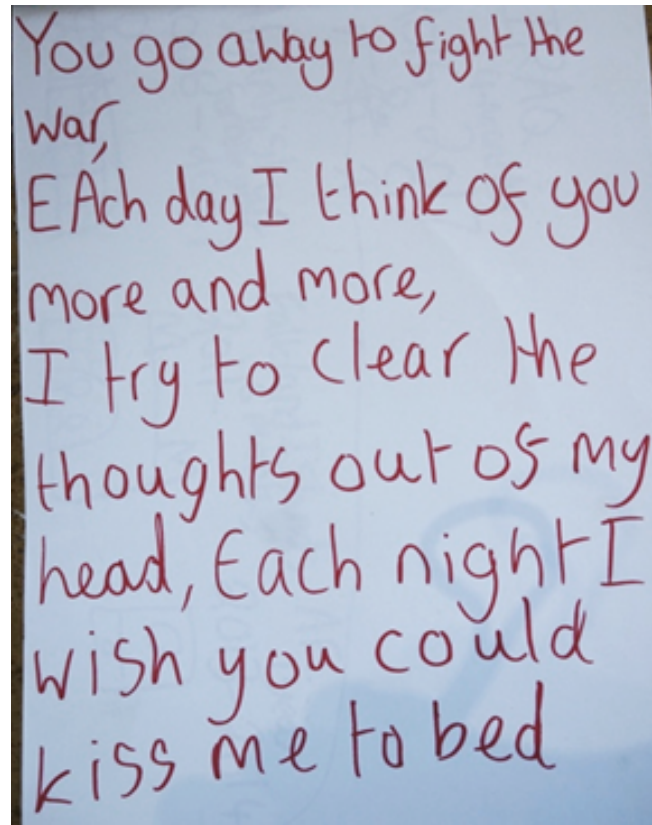 You go away to fight the
war,
EAch day I think of you
more and more,
I try to clear the
thoughts out of my
head, Each night I
wish you could
kiss me to bed